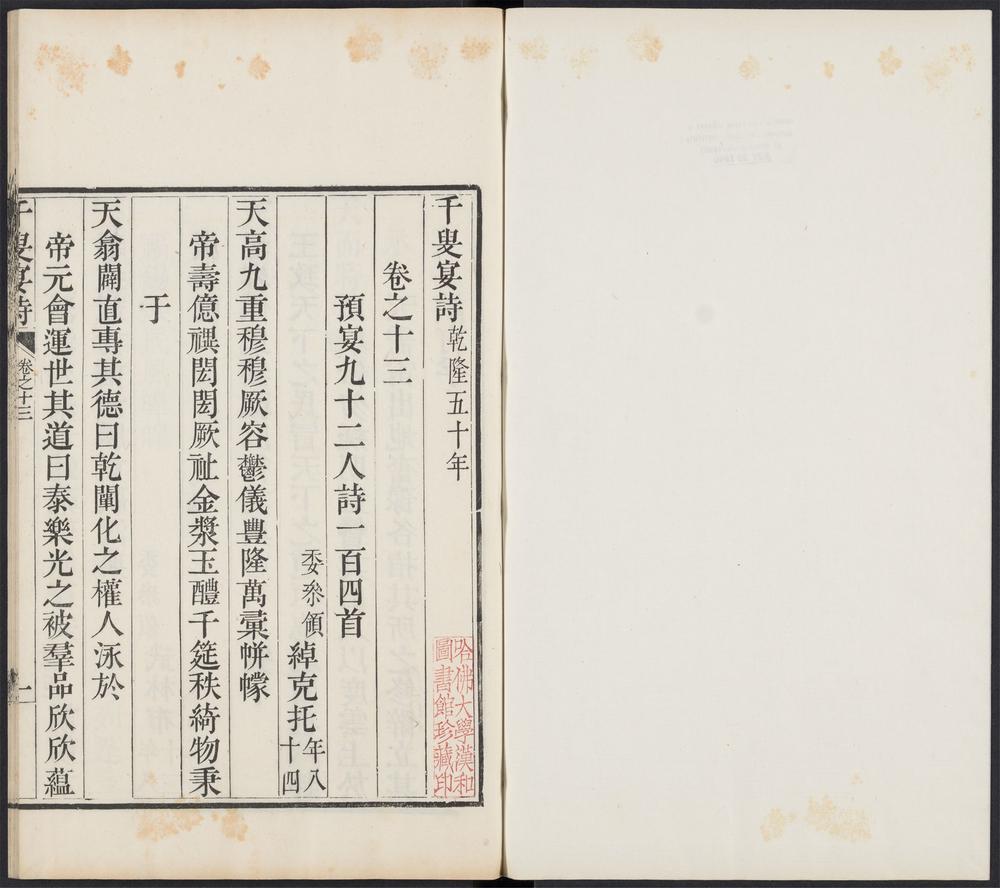 千叟宴詩 乾隆五十年
卷之十三
預宴九十二人詩一百四首
委叅領 綽克托 年八十四
天高九重穆穆厥容鬱儀豐隆萬彚帡幪
帝壽億禩閎閎厥祉金漿玉醴千筵秩綺物秉
于
天翕闢直專其德曰乾闡化之權人泳於
帝元會運世其道曰泰樂光之被羣品欣欣蘊
千叟宴詩 卷之十三 一
哈佛大學漢和
圖書館珍藏印